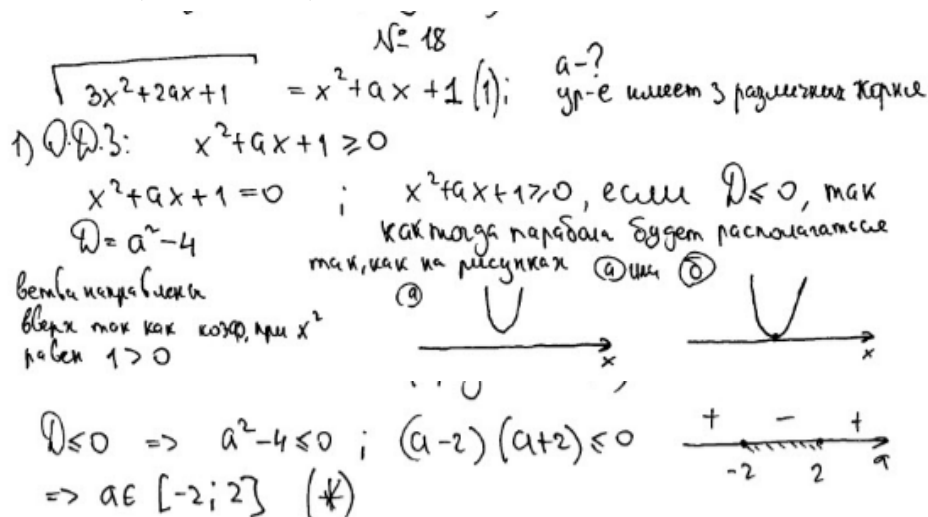 № 18
√(3x²+2ax+1) = x²+ax+1 (1); a-?
ур-е имеет 3 различных корня
1) О.Д.З: x²+ax+1 ≥ 0
x²+ax+1 = 0 ; x²+ax+1 ≥ 0, если D ≤ 0, так
D = a²-4 как тогда парабола будет располагаться
так, как на рисунках а или б
ветви направлены
вверх так как коэф. при x²
равен 1 > 0
а
x
x
D ≤ 0 => a²-4 ≤ 0 ; (a-2)(a+2) ≤ 0
+ - +
-2 2 a
=> a ∈ [-2; 2] (*)